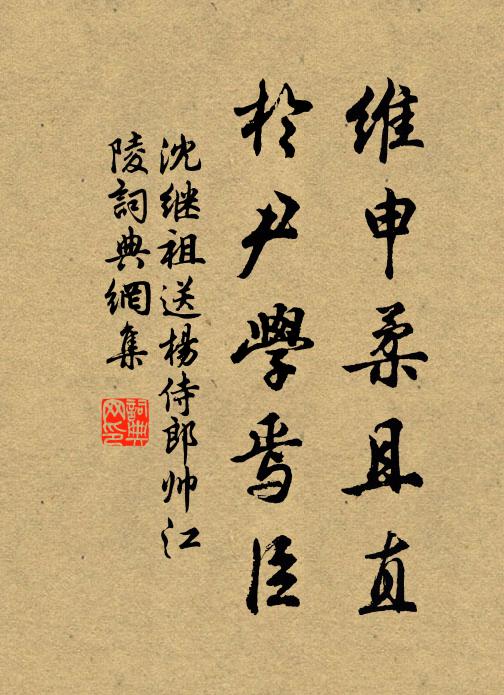 維申柔且直
於尹學焉臣
沈继祖送楊侍郎帅江
陵詞典網集
詞典网印